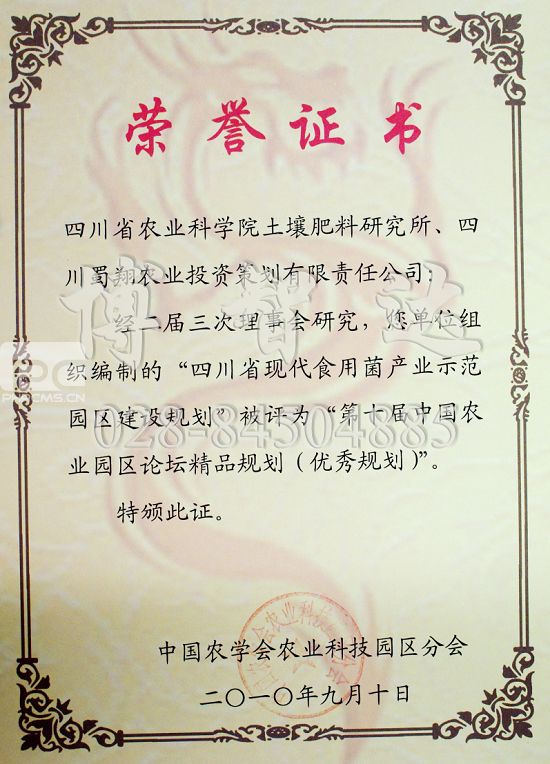 荣誉证书
四川省农业科学院土壤肥料研究所、四
川蜀翔农业投资策划有限责任公司：
经二届三次理事会研究，您单位组
织编制的“四川省现代食用菌产业示范
园区建设规划”被评为“第十届中国农
业园区论坛精品规划（优秀规划）”。
特颁此证。
中国农学会农业科技园区分会
二〇一〇年九月十日
博智达
028-84504885
PMCMS.CN